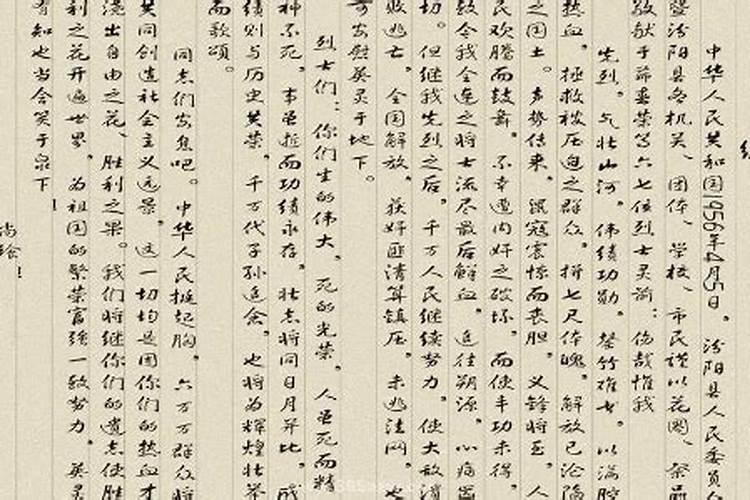 中华人民共和国1956年4月5日。汾阳县人民委员
暨汾阳县各机关、团体、学校、市民谨以花圈、祭品
敬献于茹秉荣等六七位烈士灵前：伤哉惟我
先烈。气壮山河。伟绩功勋。罄竹难书。以满腔
热血。拯救被压迫之群众。拼七尺体魄。解放已沦陷
之国土。声势传来。鼠寇震惊而丧胆。义锋将至。人
民欢腾而鼓舞。不幸遭内奸之破坏。而使丰功未得。
致令我全连之将士流尽最后鲜血。追往溯源。心痛
切。但继我先烈之后。千万人民继续努力。使大敌
败逃亡。全国解放。获奸匪清算镇压。未逃法网。
慰英灵于地下。
烈士们：你们生的伟大。死的光荣。人虽死而精
神不死。事虽短而功绩永存。壮志将同日月并比。
绩则与历史共荣。千万代子孙追念。也将为辉煌壮
而歌颂。
同志们安息吧。中华人民挺起胸。六万万群众将
共同创造社会主义远景。这一切均是因你们的热血才
浇出自由之花、胜利之果。我们将继你们的遗志使胜
利之花开遍世界。为祖国的繁荣富强一致努力。英灵
有知也当含笑于泉下！
尚
！